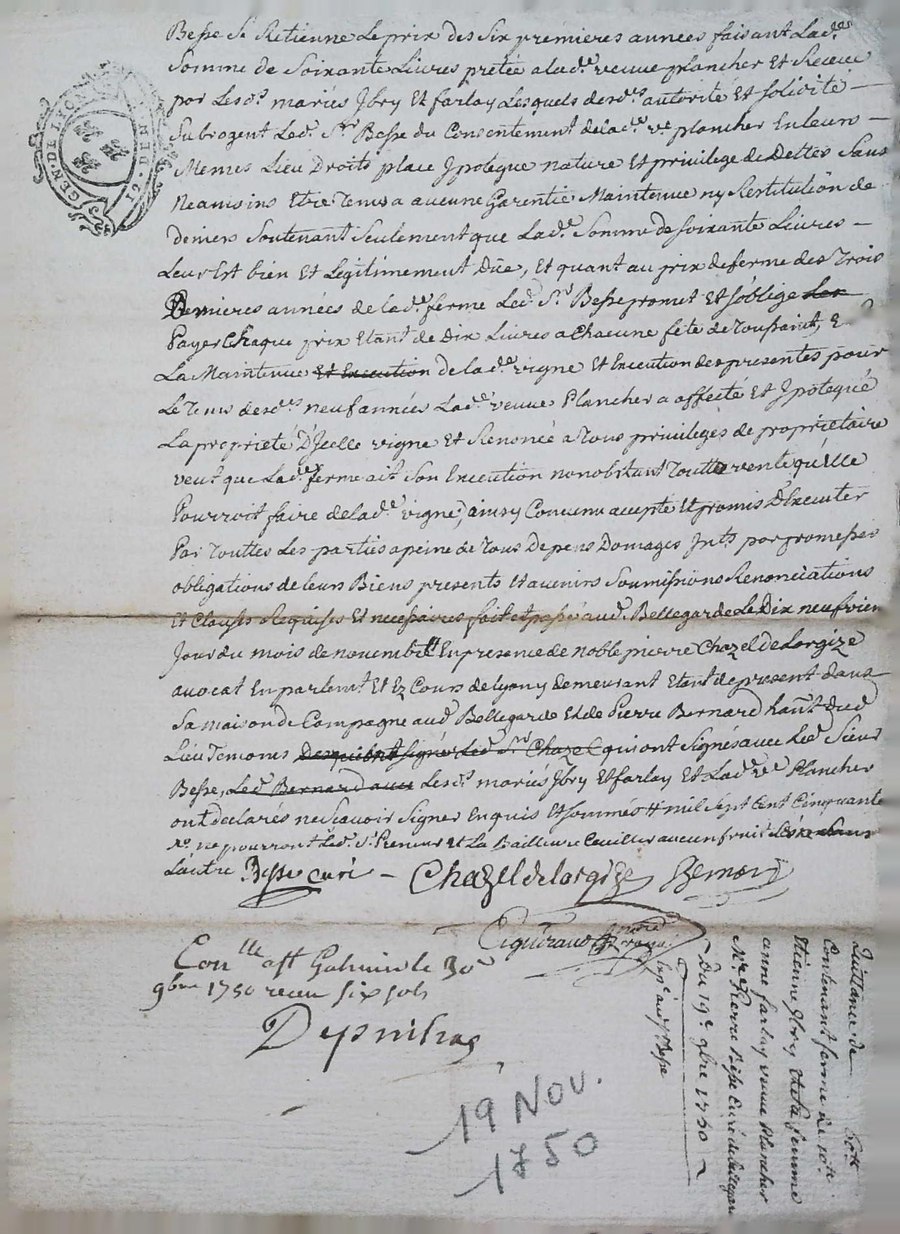 Besse Se Retienne Le prix des Six premieres années faisant Lade
Somme de Soixante Livres pretée a lade veuve plancher Et Receue
par Lesds mariés Jbry Et farlay Lesquels de sds autorité Et solidité
Subrogent Led. Sr Besse du Consentement de lade ve plancher En leurs
Memes Lieu Droits place Jpoteque nature Et privilege de Dettes Sans
Neamoins Etre Tenus a aucune Garentie Maintenue ny Restitution de
deniers Soutenant Seulement que Lade Somme de Soixante Livres
Leur Est bien Et Legitimement Düe, Et quant au prix de ferme des Trois
Dernieres années de lade ferme Led. Sr Besse promet Et s'oblige
Payer Chaque prix Etant de Dix Livres a Chacune fête de Toussaint, E
La Maintenue Et Execution de lade vigne Et Execution des presentes pour
Le Tems desds neuf années Lade veuve Plancher a affecté Et Jpotequé
La proprieté D'Jcelle vigne Et Renoncé a Tous privileges de proprietaire
veut que Lade ferme ait Son Execution nonobstant Toutte vente qu'Elle
Pourroit faire de lade vigne, ainsy Convenu accepté Et promis D'Executer
Par Touttes Les parties a peine de Tous Depens Domages Jnts par promesses
obligations de leurs Biens presents Et avenirs Soumissions Renonciations
Et Clauses Requises Et necessaires fait Et passé aud. Bellegarde Le Dix neufvieme
Jour du mois de novembre En presence de noble pierre Chazel de Lorgize
avocat En parlemt Et Ez Cours de Lyon y demeurant Etant de present dans
Sa maison de Campagne aud. Bellegarde Et de Pierre Bernard hant dud
Lieu Temoins Desquels ont signé Led. Sr Chazel qui ont Signés avec Led Sieur
Besse, Led. Bernard avec Lesds mariés Jbry Et farlay Et Lade ve Plancher
ont declarés ne Sçavoir Signer Enquis Et sommés # mil Sept Cent Cinquante
ne pourront Led. Sr Preneur Et La Bailleuse Ceuillir aucun fruit Sans
L'autre Besse curé Chazel de lorgize Bernard
Eon lle a St Galmier le 30e
9bre 1750 receu six sols
19 NOV.
1750
Quittance de 60tt
Contenant ferme de 10tt
Etienne Jbry Et Sa femme
anne farlay veuve Plancher
Mre Pierre Besse Curé de bellegarde
Du 19e 9bre 1750
GEN. DE LYON
12 DEN.